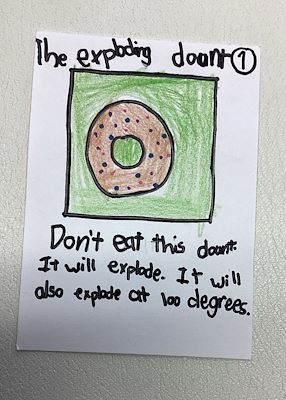 The exploding doant ①
Don't eat this doant.
It will explode. It will
also explode at 100 degrees.